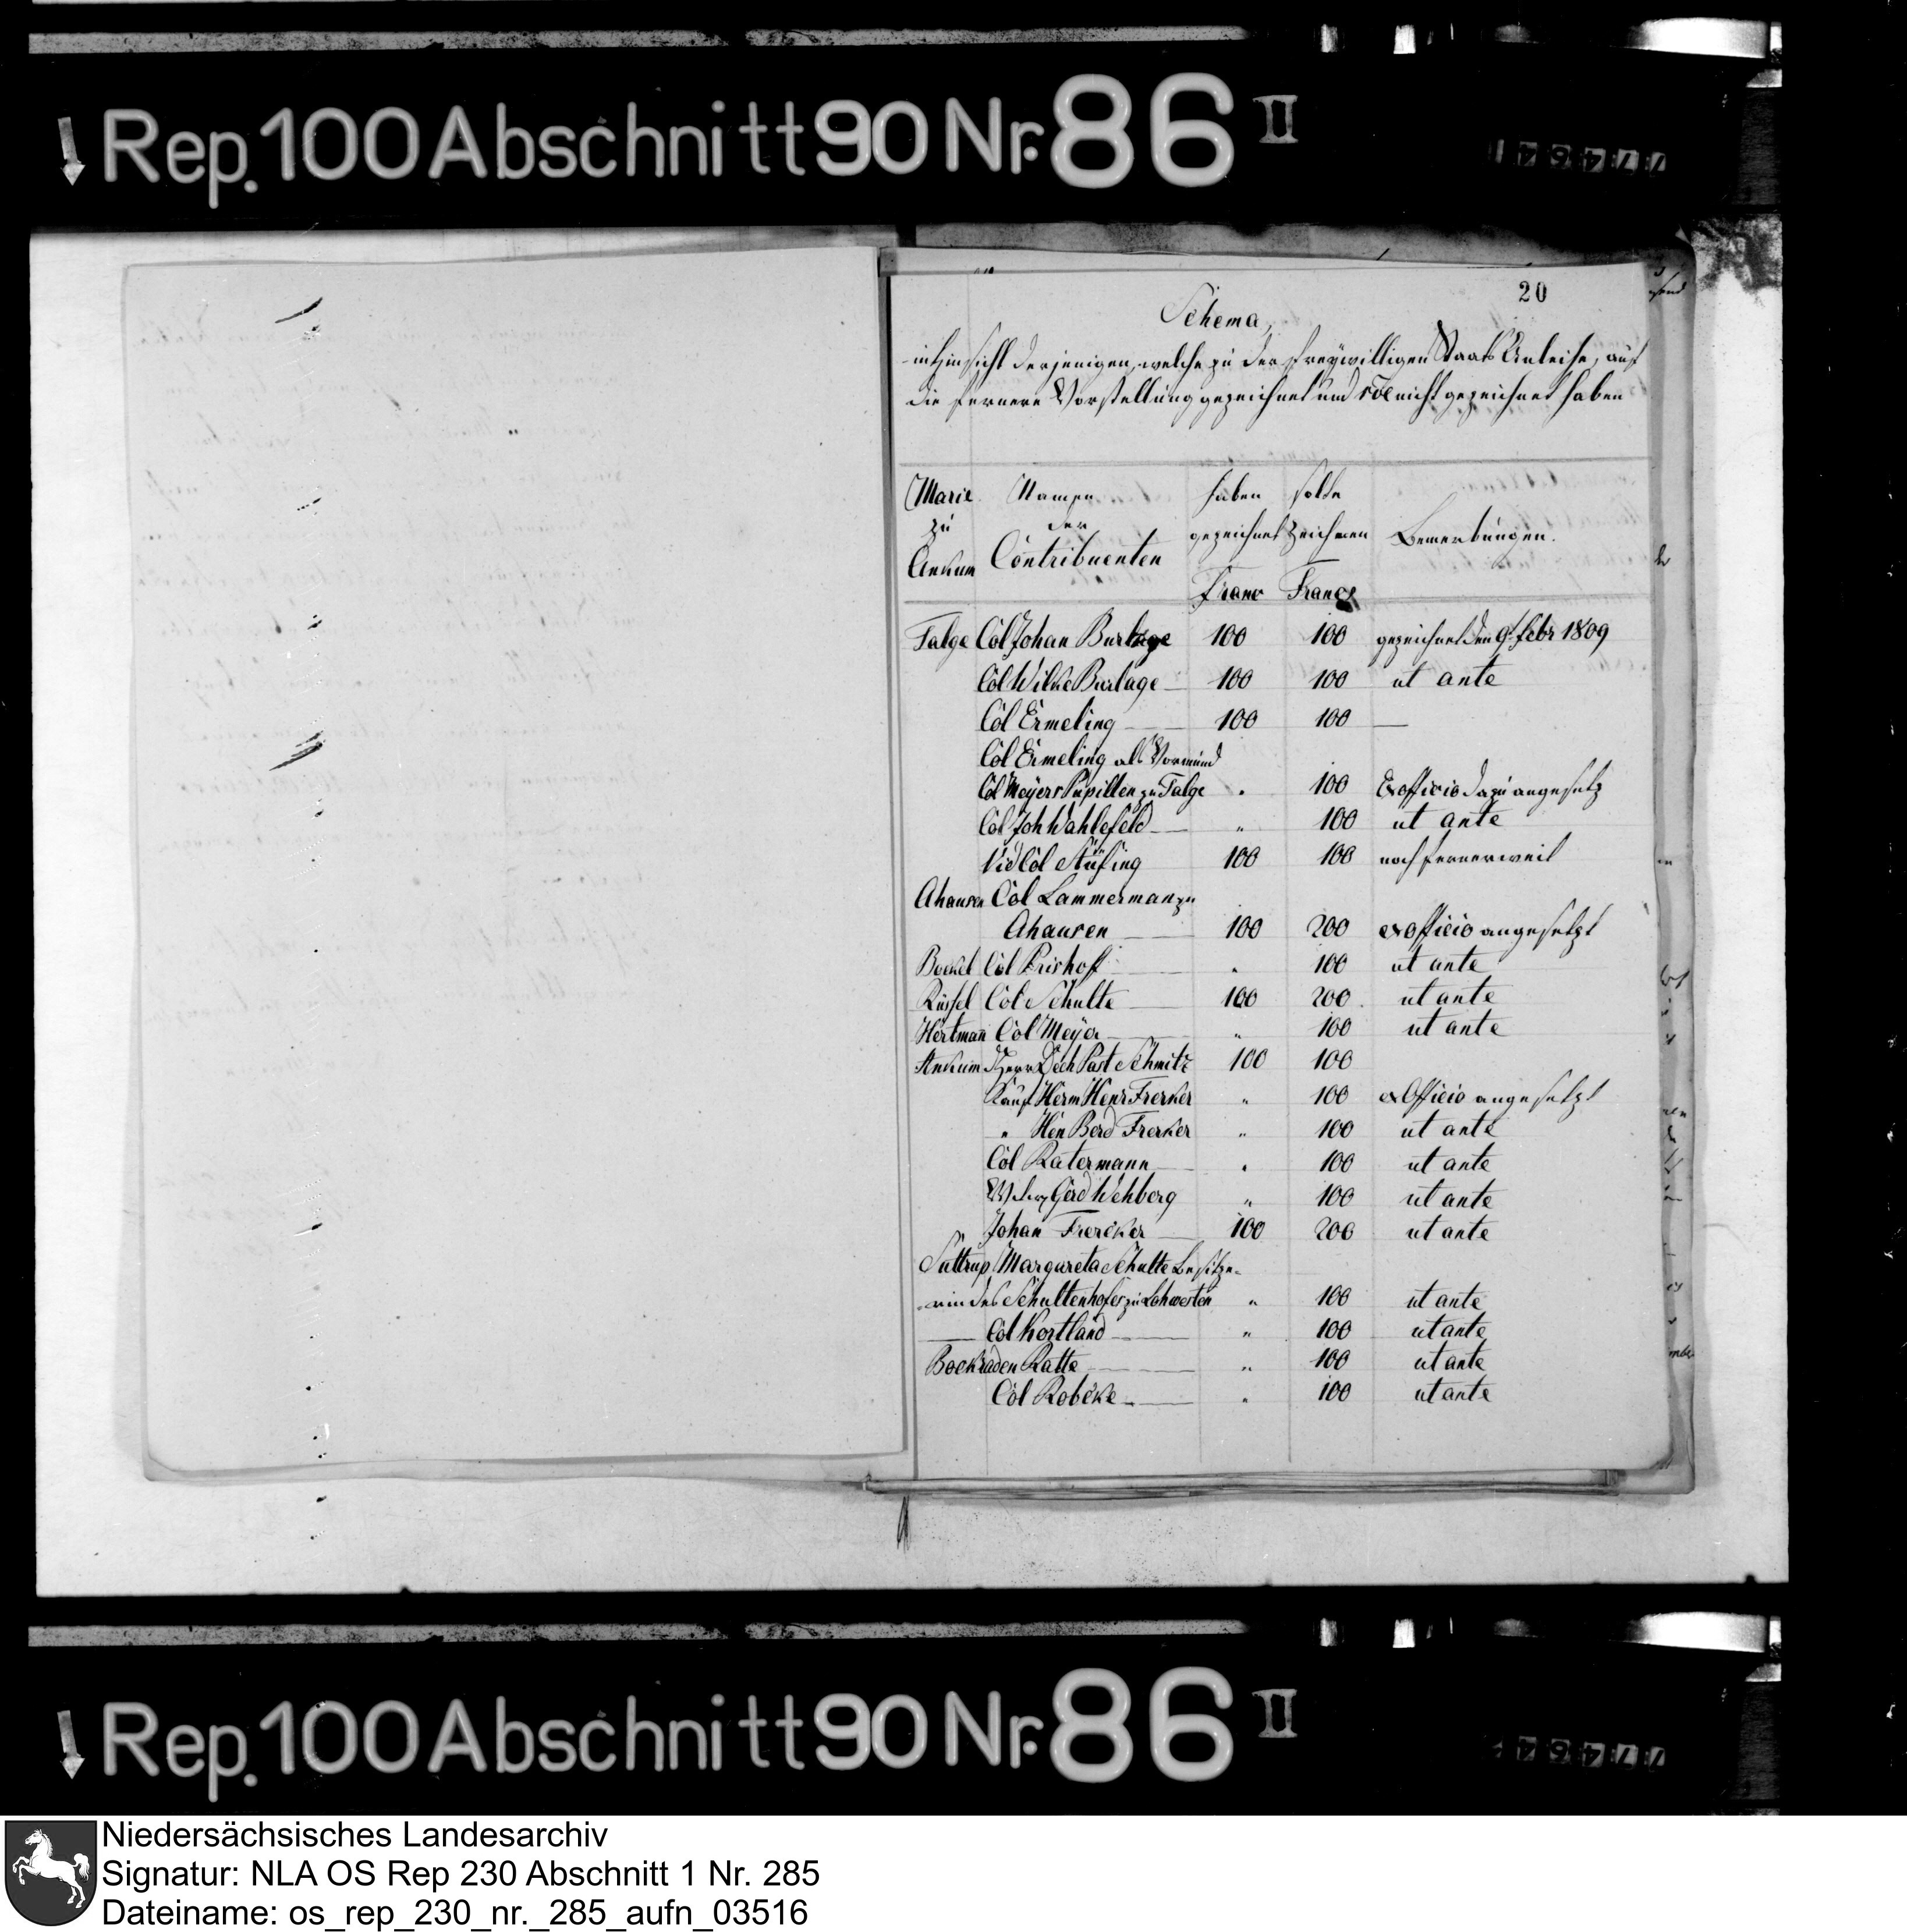 Rep. 100 Abschnitt 90 Nr. 86 II
20
Schema,
in Hinsicht derjenigen, welche zu der freywilligen Staats Anleihe, auf
die fernere Vorstellung gezeichnet und nicht gezeichnet haben
Marie Namen haben solte
zu der gezeichnet zeichnen Bemerkungen.
Ankum Contribuenten
Franc Francs
Talge Col Johan Burlage 100 100 gezeichnet den 9t Febr 1809
Col Wilke Burlage 100 100 ut ante
Col Ermeling 100 100 —
Col Ermeling als Vormund
Col Meyers Pupillen zu Talge " 100 Ex officio dazu angesetz
Col Joh Wahlefeld " 100 ut ante
Vid Col Stüfing 100 100 noch
Ahausen Col Lammerman zu
Ahausen 100 200 ex officio angesetzt
Bockel Col Prishoff " 100 ut ante
Rüssel Col Schulte 100 200 ut ante
Hertman Col Meyer " 100 ut ante
Ankum Herr Dech Past Schmitz 100 100
Kauf Herm Henr Frerker " 100 ex Officio angesetzt
" Hen Bernd Frerker " 100 ut ante
Col Katermann " 100 ut ante
Gerd Wehberg " 100 ut ante
Johan Frercker 100 200 ut ante
Suttrup Margareta Schulte Besitze-
rin des Schultenhofes zu Lohwesten " 100 ut ante
— Col Kortland " 100 ut ante
Bockraden Katte " 100 ut ante
Col Robcke " 100 ut ante
Rep. 100 Abschnitt 90 Nr. 86 II
Niedersächsisches Landesarchiv
Signatur: NLA OS Rep 230 Abschnitt 1 Nr. 285
Dateiname: os_rep_230_nr._285_aufn_03516